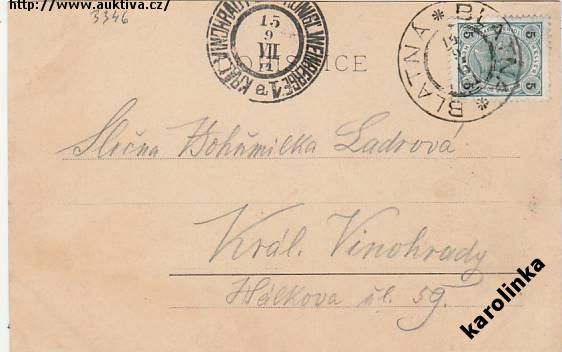 http://www.auktiva.cz/
3346
KRÁL. VINOHRADY KÖNIGL. WEINBERGE 1 a
15
9
VII
BLATNA * BLATNA *
5 5
5 5
Slečna Bohumilka Ladrová
Král. Vinohrady
Hálkova ul. 59.
karolinka